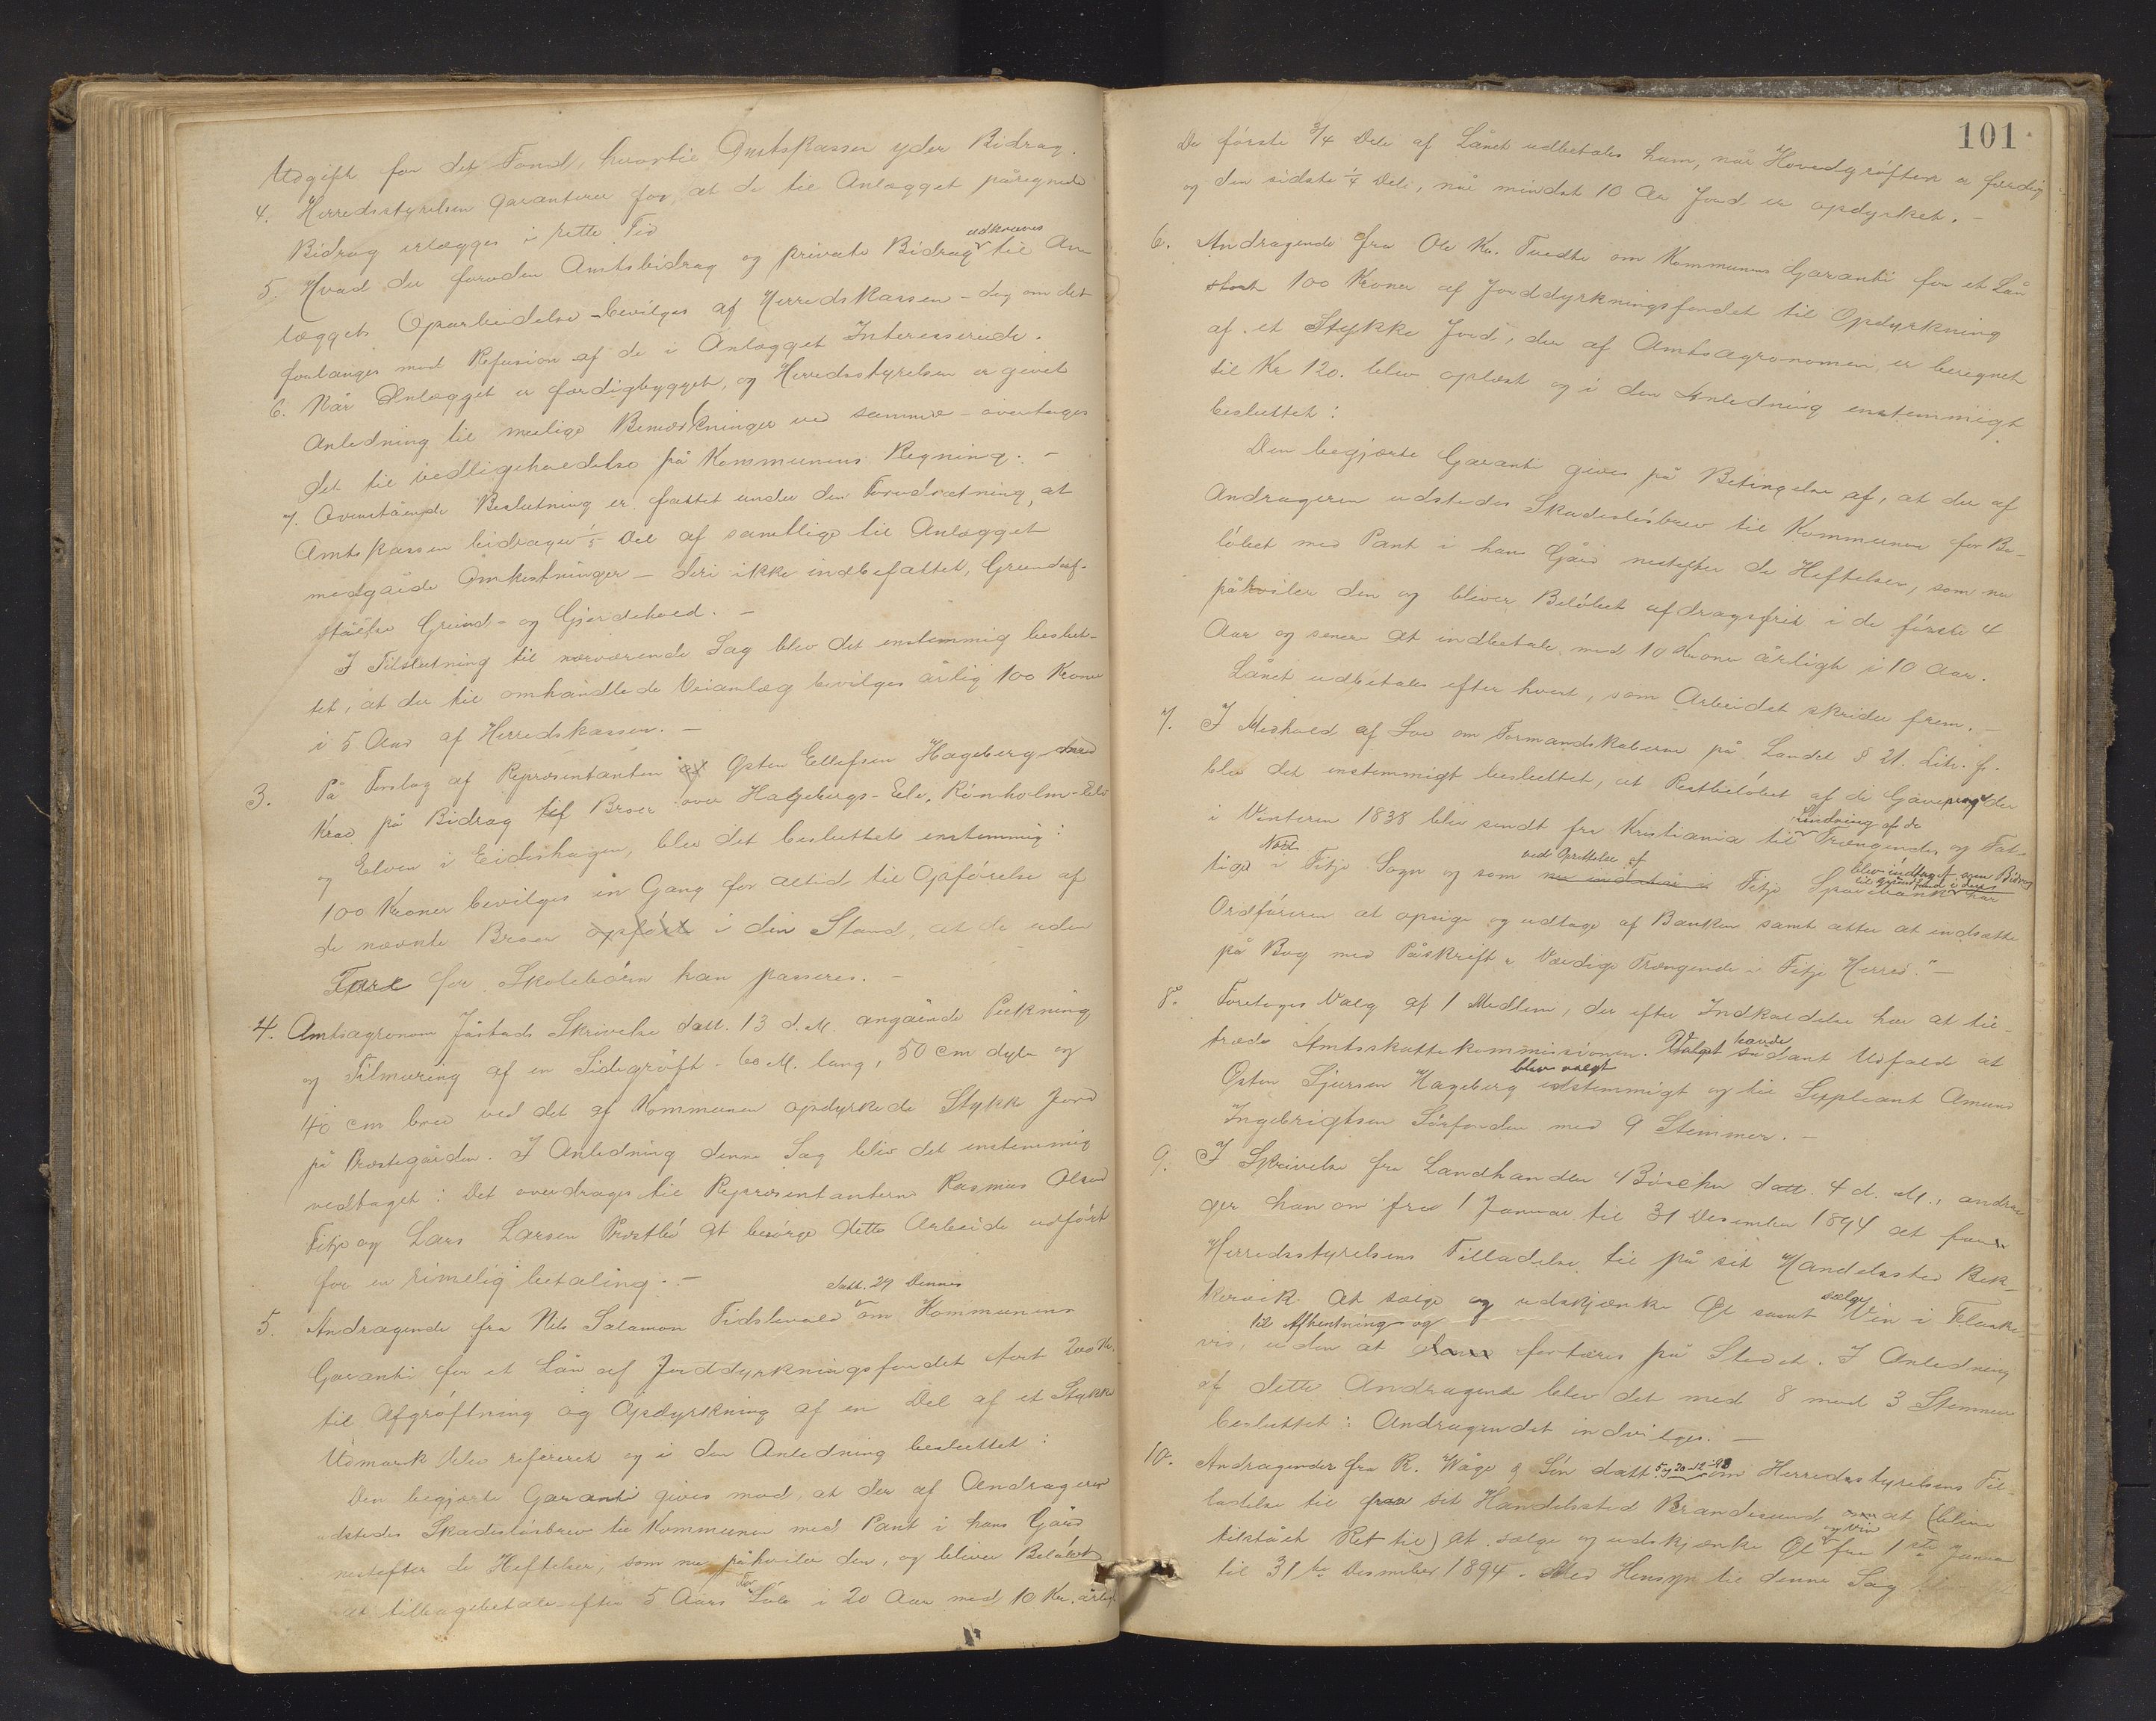 Udgift for det Fond, hvortil Amtskassen yder Bidrag.
4. Herredsstyrelsen garanterer for, at de til Anlægget påregnede
Bidrag erlægges i rette Tid
5. Hvad der foruden Amtsbidrag og private Bidrag udkræves til An-
læggets Oparbeidelse bevilges af Herredskassen – dog om det
forlanges mod Refusion af de i Anlægget Interesserede.
6. Når Anlægget er færdigbygget, og Herredsstyrelsen er givet
Anledning til mulige Bemærkninger ved samme – overtages
det til vedligeholdelse på Kommunens Regning. –
7. Ovenstående Beslutning er fattet under den Forudsætning, at
Amtskassen bidrager 1/5 Del af samtlige til Anlægget
medgåede Omkostninger – deri ikke indbefattet, Grundaf-
ståelse Grund- og Gjærdehold. –
I Tilslutning til nærværende Sag blev det enstemmig beslut-
tet, at der til omhandlede Veianlæg bevilges årlig 100 Kroner
i 5 Aar af Herredskassen. –
3. På Forslag af Repræsentanten Østen Ellefsen Hageberg med
Krav på Bidrag til Broer over Hagebergs-Elv, Rönholm-Elv
og Elven i Eidshagen, blev det besluttet enstemmig:
100 Kroner bevilges en Gang for altid til Opførelse af
de nævnte Broer opført i den Stand, at de uden
Fare for Skolebörn kan passeres. –
4. Amtsagronom Jåstads Skrivelse datt. 13 d. M. angående Pukning
og Tilmuring af en Sidegröft – 60 M. lang, 50 cm dyb og
40 cm bred ved det af Kommunen opdyrkede Stykke Jord
på Præstegården. I Anledning denne Sag blev det enstemmig
vedtaget: Det overdrages til Repræsentanterne Rasmus Olsen
Fitje og Lars Larsen Prestbö at besörge dette Arbeide udfört
for en rimelig betaling. –
5. Andragende fra Nils Salamon Tidslevold datt. 29 Dennes om Kommunens
Garanti for et Lån af Jorddyrkningsfondet stort 200 Kr.
til Afgröftning og Opdyrkning af en Del af et Stykke
Udmark blev refereret og i den Anledning besluttet:
Den begjærte Garanti gives mod, at der af Andrageren
udstedes Skadeslösbrev til Kommunen med Pant i hans Gård
nestefter de Heftelser, som nu påhviler den, og bliver Belöbet
at tilbagebetale efter 5 Aars For Löb i 20 Aar med 10 Kr. årlig.
101.
De förste 3/4 Dele af Lånet udbetales ham, når Hovedgröften er færdig
og den sidste 1/4 Del, når mindst 10 Ar Jord er opdyrket. –
6. Andragende fra Ole Kn. Tvedte om Kommunens Garanti for et Lån
stort 100 Kroner af Jorddyrkningsfondet til Opdyrkning
af et Stykke Jord, der af Amtsagronomen er beregnet
til Kr 120. blev oplæst og i den Anledning enstemmigt
besluttet:
Den begjærte Garanti gives på Betingelse af, at der af
Andrageren udstedes Skadeslösbrev til Kommunen for Be-
löbet med Pant i hans Gård nestefter de Heftelser, som nu
påhviler den og bliver Belöbet afdragsfrit i de förste 4
Aar og senere at indbetale med 10 Kroner årligt i 10 Aar.
Lånet udbetales efter hvert, som Arbeidet skrider frem. –
7. I Medhold af Lov om Formandskaberne på Landet § 21. Litr. f.
blev det enstemmigt besluttet, at Restbelöbet af de Gavepenge der
i Vinteren 1838 blev sendt fra Kristiania til Lindring af de Trængendes og Fat-
tiges Nød i Fitje Sogn og som ved Oprettelse af Fitje Sparebank blev indtaget som Bidrag
til grundfond i dens
Ordföreren at opsige og udtage af Banken samt atter at indsætte
på Bog med Påskrift „Værdige Trængende i Fitje Herred". –
8. Foretoges Valg af 1 Medlem, der efter Indkaldelse har at til-
træde Amtsskattekommissionen. Valget havde sådant Udfald at
Østen Sjursen Hageberg blev valgt enstemmigt og til Suppleant Amund
Ingebrigtsen Sörfonden med 9 Stemmer. –
9. I Skrivelse fra Landhandler datt. 4 d. M., andra-
ger han om fra 1 Januar til 31 Desember 1894 at få
Herredsstyrelsens Tilladelse til på sit Handelssted Bek-
kervik at sælge og udskjænke Øl samt sælge Vin i Flaske-
vis, til Afhentning og uden at fortæres på Stedet. I Anledning
af dette Andragende blev det med 8 mod 3 Stemmer
besluttet: Andragendet indvilges. –
10. Andragender fra R. Wåge & Sön datt 5 og 20-12-93 om Herredsstyrelsens Til-
ladelse til fra sit Handelssted Brandesund at (blive
tilstået Ret til) at sælge og udskjænke Øl og Vin fra 1ste Januar
til 31te Desember 1894. Med Hensyn til denne Sag